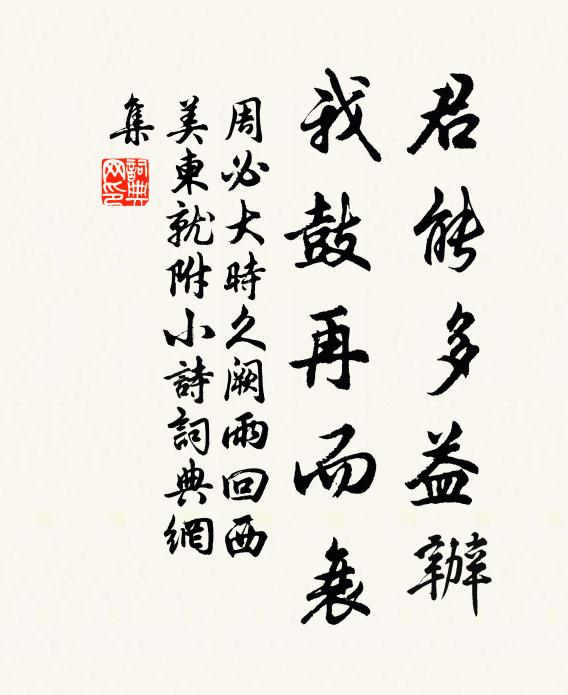 君能多益辦
我鼓再而衰
周必大時久闕雨回西
美東就附小詩詞典網
集
詞典
网印